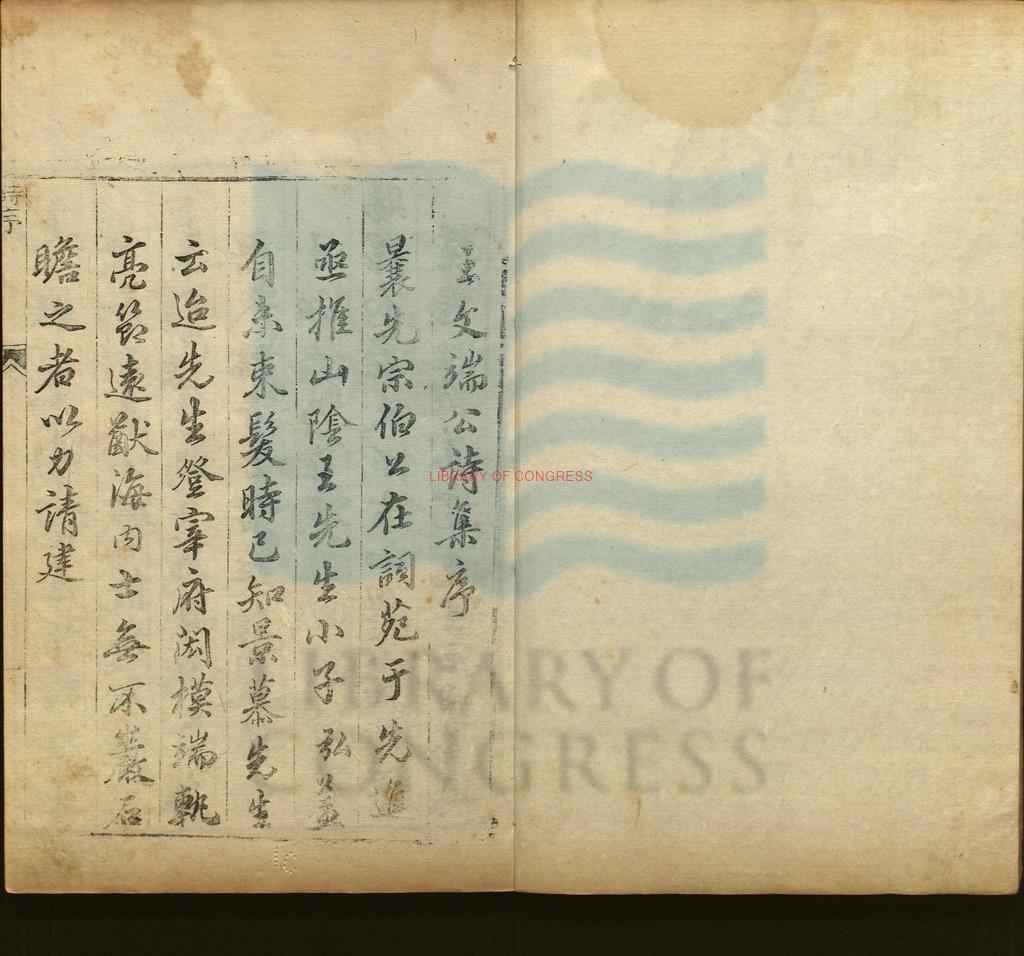 王文端公詩集序
曩先宗伯公在詞苑于先進
亟推山陰王先生小子弘益
自未束髮時已知景慕先生
云迨先生登宰府閎模端執
亮節遠猷海內士無不巖石
瞻之者以力請建
詩序
LIBRARY OF CONGRESS
LIBRARY OF
CONGRESS